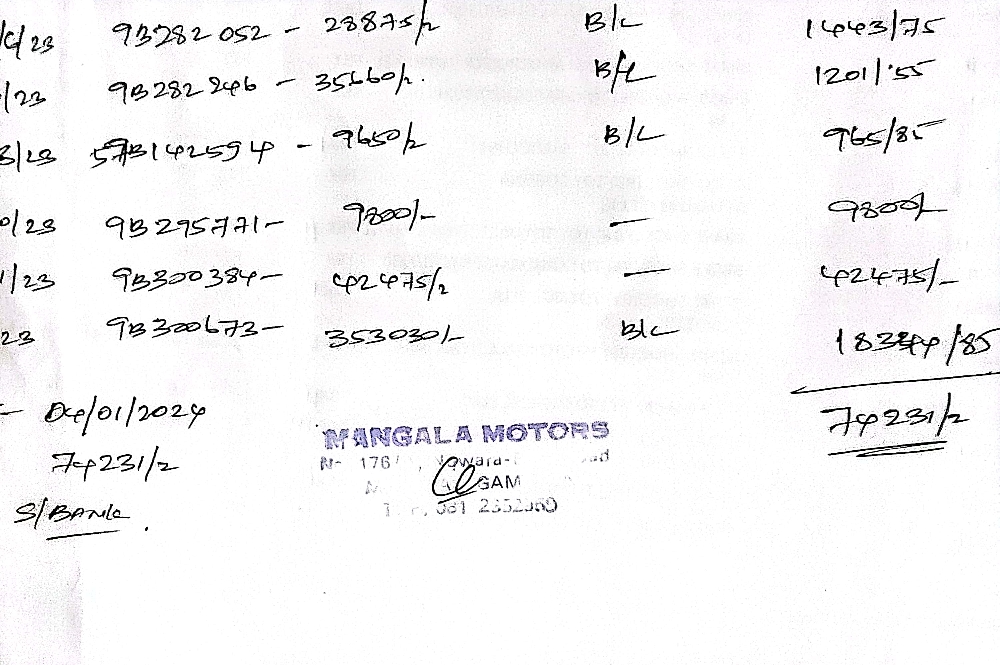 /4/23 9B282052 - 28875/= B/L 1443/75
/23 9B282246 - 35660/=. B/L 1201/55
3/23 57B142594 - 9650/= B/L 965/85
0/23 9B295771- 9800/- — 9800/-
1/23 9B300384- 42475/= — 42475/-
23 9B300673- 353030/- B/L 18344/85
74231/=
- 04/01/2024
74231/=
S/BANK.
MANGALA MOTORS
176
GAM
081